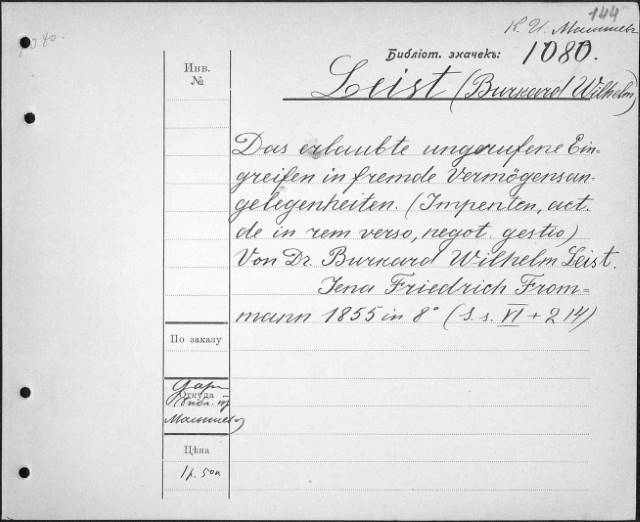 144
К. И. Малышев
Библіот. значекъ: 1080.
Инв.
№
Leist (Burkard Wilhelm)
Das erlaubte ungerufene Ein=
greifen in fremde Vermögensan=
gelegenheiten. (Impenten, act.
de in rem verso, negot. gestio)
Von Dr. Burkard Wilhelm Leist.
Jena Friedrich From=
mann 1855 in 8° (S. s. VI + 214)
По заказу
Даръ
Откуда
Малышева
Цѣна
1 р. 50 к